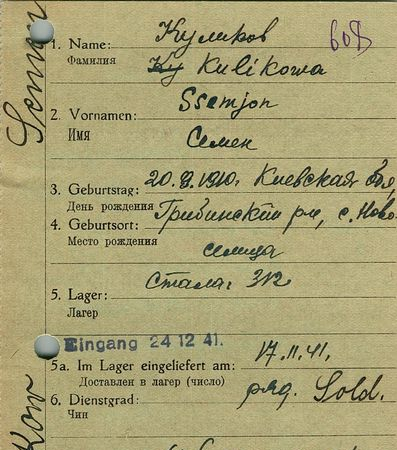 Semen
608
Куликов
1. Name:
Фамилия
Ку Kulikowa
Ssemjon
2. Vornamen:
Имя
Семен
3. Geburtstag: 20.9.1910. Киевская обл,
День рождения
4. Geburtsort: Грибинский рн, с. Ново
Место рождения
селица
Сталаг 312
5. Lager:
Лагер
Eingang 24 12 41.
5a. Im Lager eingeliefert am: 17.11.41.
Доставлен в лагер (число)
6. Dienstgrad: ряд. Sold.
Чин